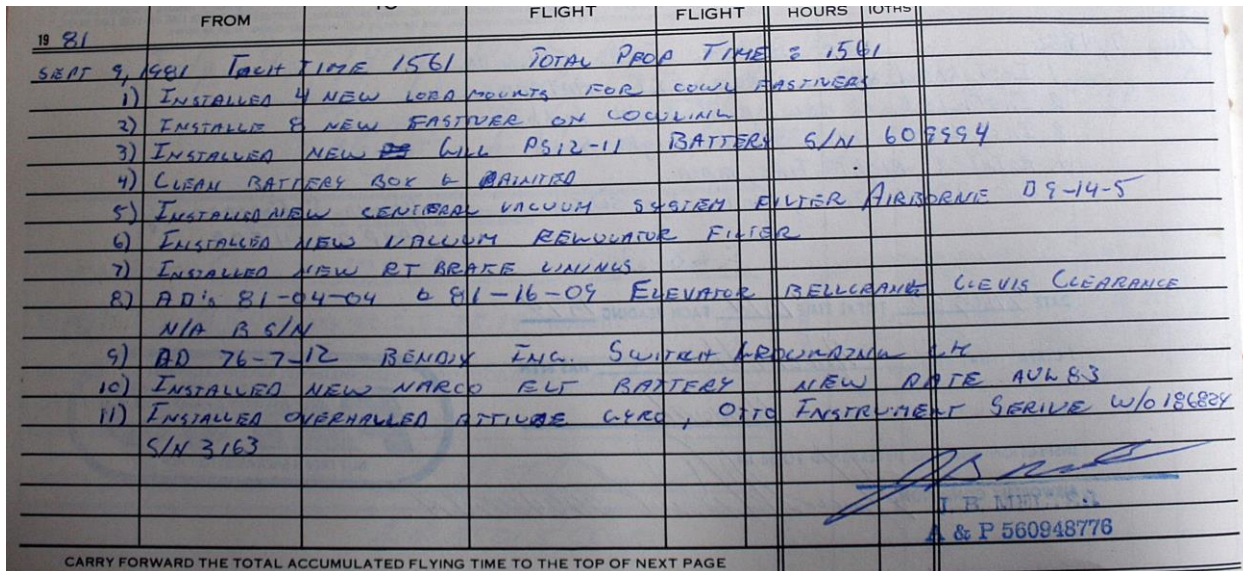 FROM FLIGHT FLIGHT HOURS 10THS
19 81
SEPT 9, 1981 TACH TIME 1561 TOTAL PROP TIME = 1561
1) INSTALLED 4 NEW LORD MOUNTS FOR COWL FASTNERS
2) INSTALLE 8 NEW FASTNER ON COWLING
3) INSTALLED NEW GILL PS12-11 BATTERY S/N 609994
4) CLEAN BATTERY BOX & PAINTED
5) INSTALLED NEW CENTERAL VACUUM SYSTEM FILTER AIRBORNE D9-14-5
6) INSTALLED NEW VACUUM REGULATOR FILTER
7) INSTALLED NEW RT BRAKE LININGS
8) AD's 81-04-04 & 81-16-09 ELEVATOR BELLCRANK CLEVIS CLEARANCE
N/A B S/N
9) AD 76-7-12 BENDIX ING. SWITCH GROUNDING CK
10) INSTALLED NEW NARCO ELT BATTERY NEW DATE AUG 83
11) INSTALLED OVERHALLED ATTITUDE GYRO, OTTO INSTRUMENT SERIVE W/O 186824
S/N 3163
J. B.
A & P 560948776
CARRY FORWARD THE TOTAL ACCUMULATED FLYING TIME TO THE TOP OF NEXT PAGE